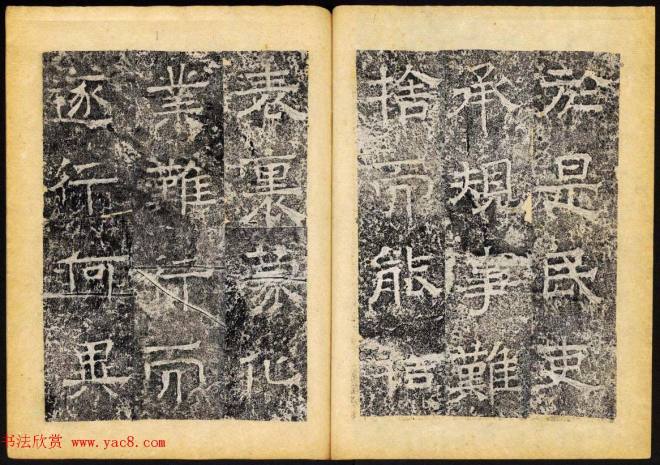 於是民吏
承規事難
捨而能信
表裏蒙化
業難行而
逐行何異
书法欣赏 www.yac8.com